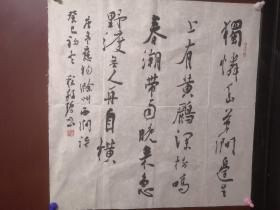 獨憐幽草澗邊生
上有黃鸝深樹鳴
春潮帶雨晚來急
野渡無人舟自橫
唐韋應物滁州西澗詩
癸巳初冬